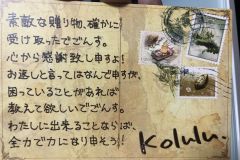 素敵な贈り物、確かに
受け取ったでごんす。
心から感謝致し申すよ!
お返しと言ってはなんで申すが、
困っていることがあれば
教えて欲しいでごんす。
わたしに出来ることならば、
全力で力になり申そう!
Kolulu.